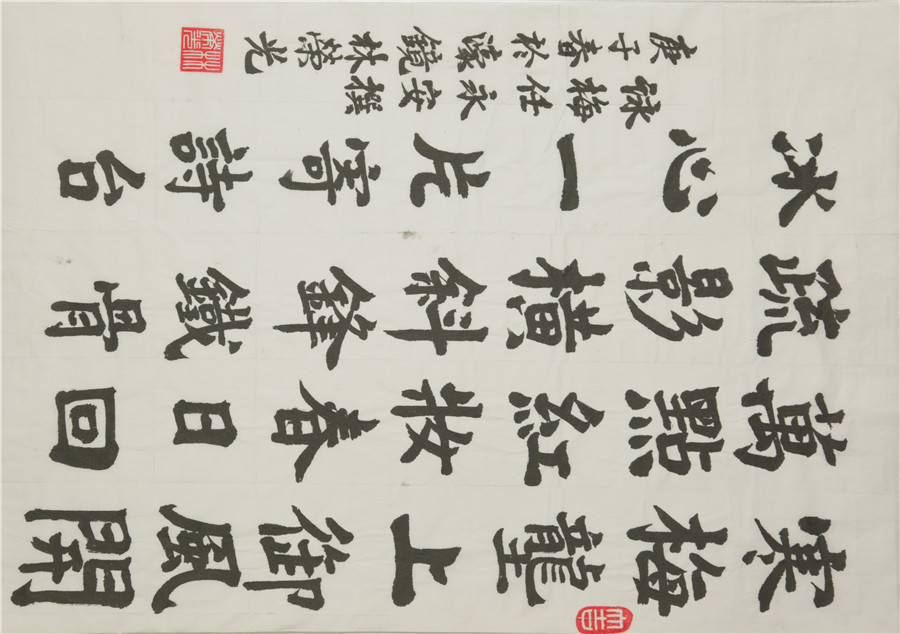 寒梅壟上御風開
萬點紅妝春日回
疏影橫斜鋒鐵骨
冰心一片寄詩台
詠梅任永安撰
庚子春於濠鏡林榮光
大吉